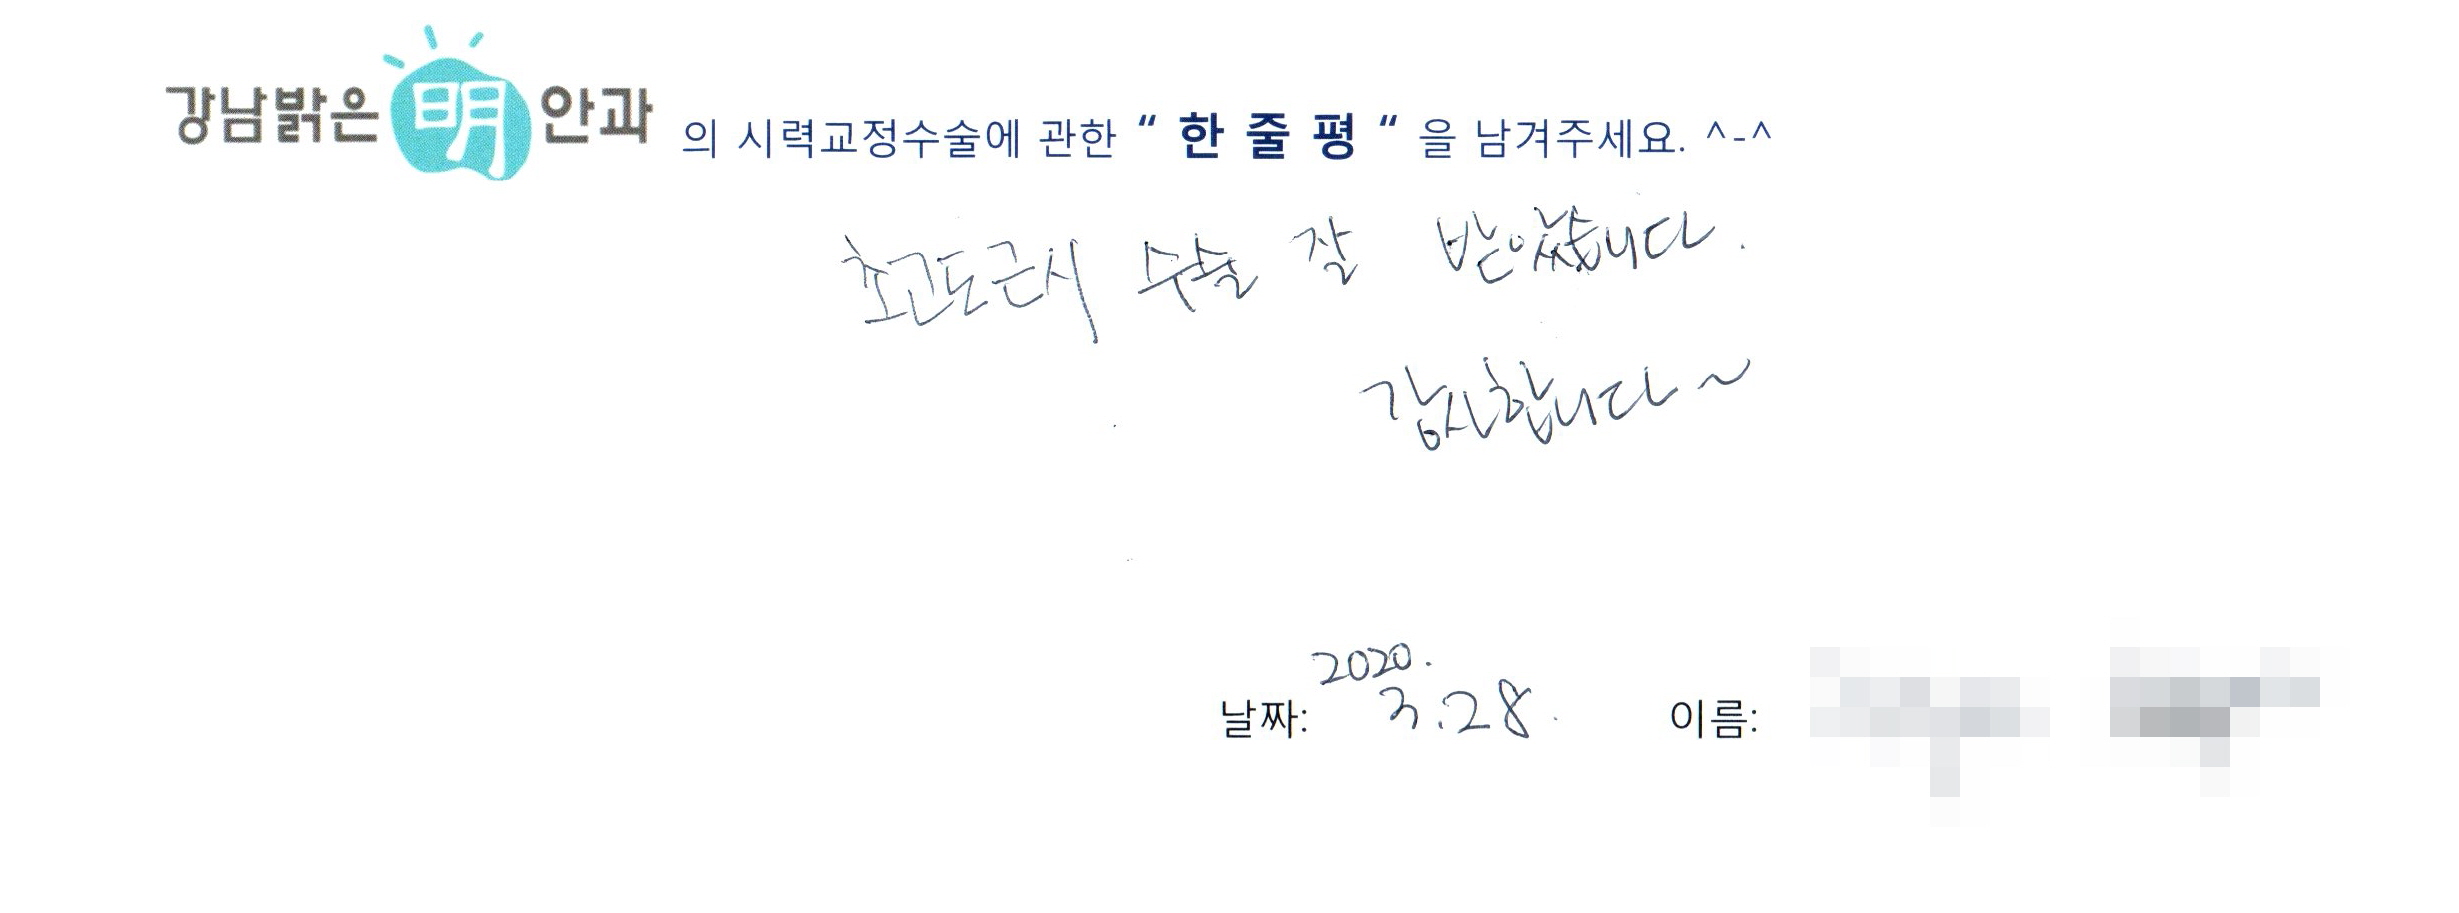 강남밝은 明 안과 의 시력교정수술에 관한 “ 한 줄 평 “ 을 남겨주세요. ^-^
초고도근시 수술 잘 받았습니다.
감사합니다~
2020.
날짜: 3.28. 이름: